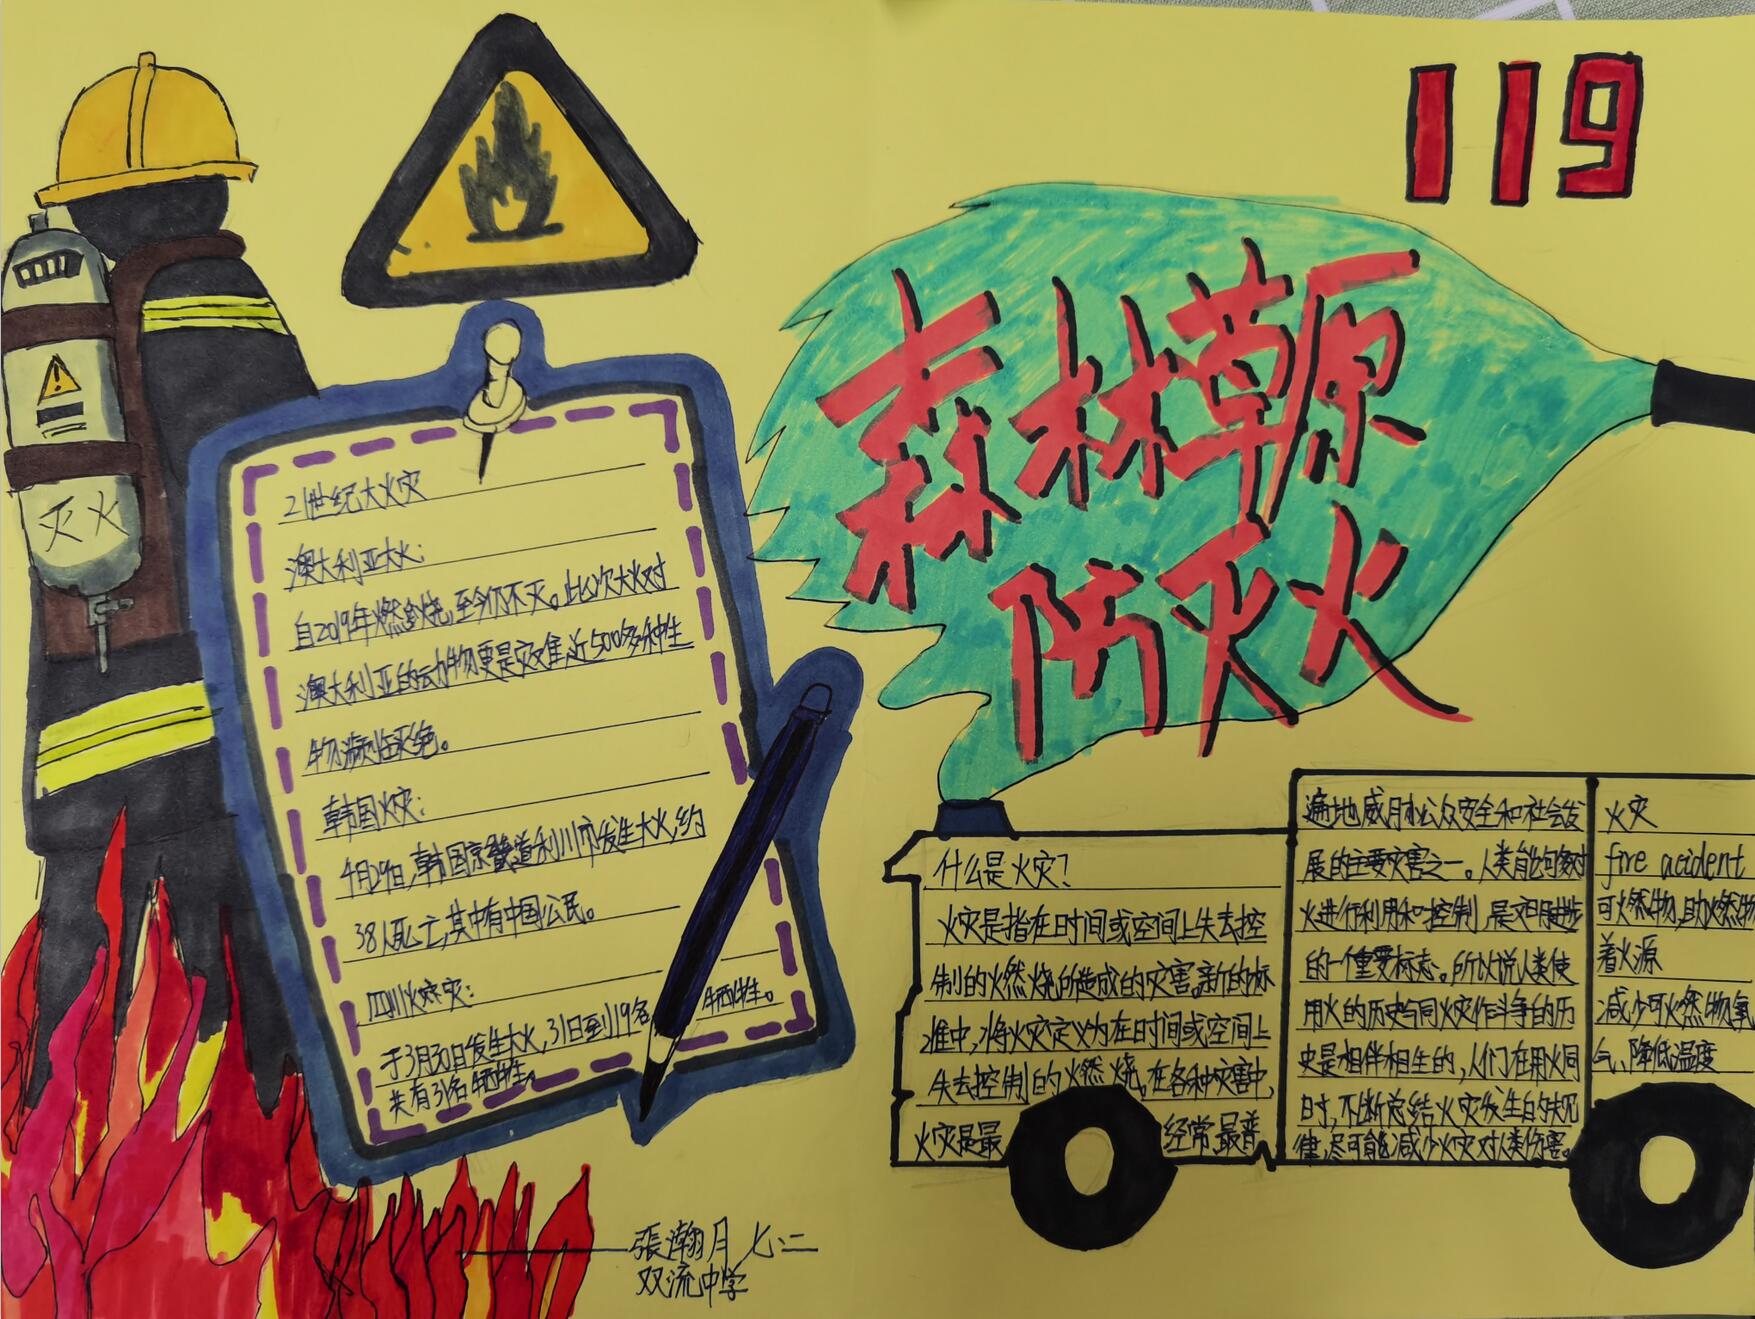 119
森林草原
防灭火
灭火
21世纪大火灾
澳大利亚大火:
自2019年燃烧,至今仍不灭。此次大火对
澳大利亚的动物更是灾难,近500多种生
物濒临灭绝。
韩国火灾:
4月29日,韩国京畿道利川市发生大火,约
38人死亡,其中有中国公民。
四川火灾:
于3月30日发生大火,31日至119名牺牲。
共有31名牺牲。
什么是火灾?
火灾是指在时间或空间上失去控
制的火燃烧所造成的灾害。新的标
准中,将火灾定义为在时间或空间上
失去控制的燃烧。在各种灾害中,
火灾是最经常最普
遍地威胁公众安全和社会发
展的主要灾害之一。人类能够对
火进行利用和控制,是文明进步
的一个重要标志。所以说人类使
用火的历史与同火灾作斗争的历
史是相伴相生的,人们在用火同
时,不断总结火灾发生的规
律,尽可能减少火灾对人类伤害。
火灾
fire acident
可燃物,助燃物
着火源
减少可燃物氧
气、降低温度
張瀚月 七二
双流中学